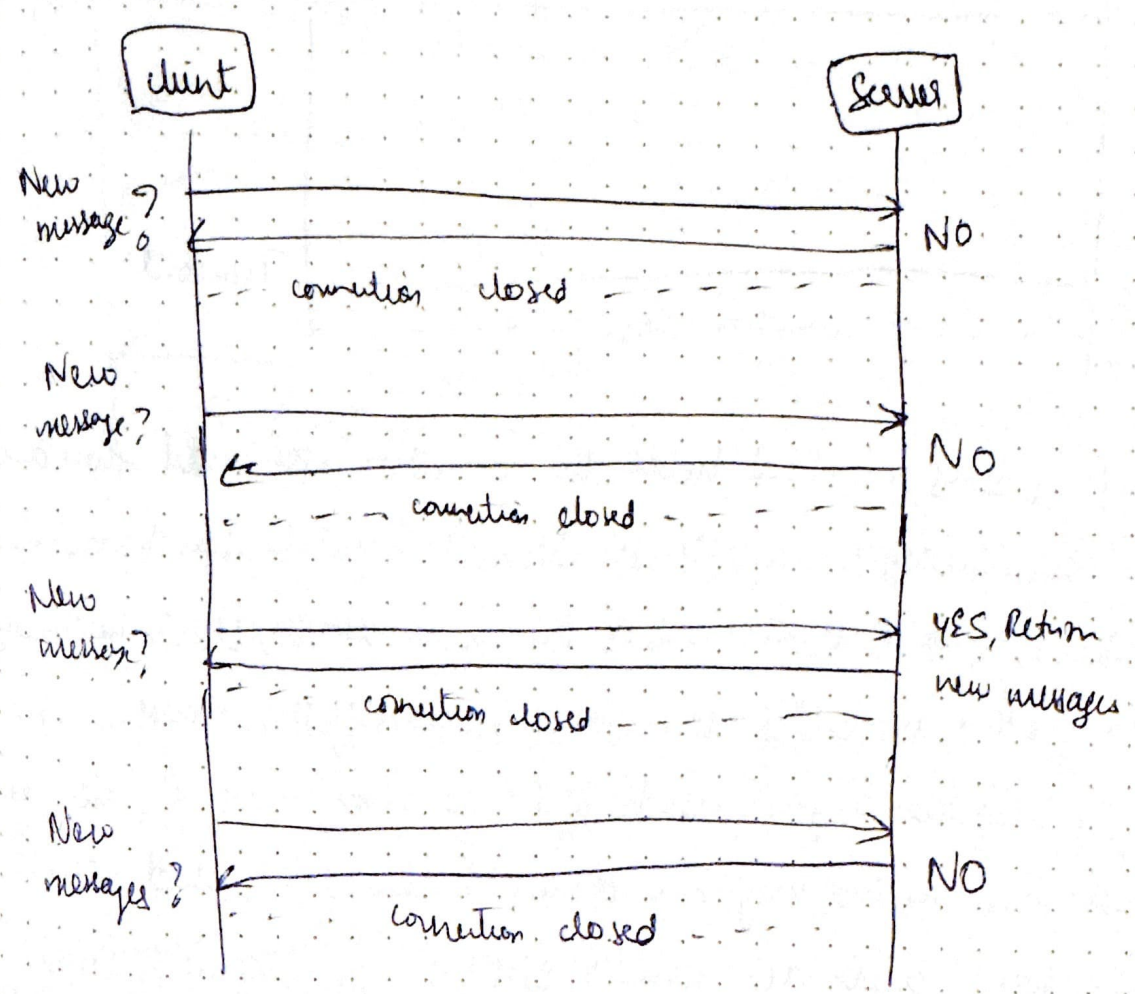 Client
Server
New
message?
NO
connection closed
New
message?
NO
connection closed
New
message?
YES, Return
new messages
connection closed
New
messages?
NO
connection closed